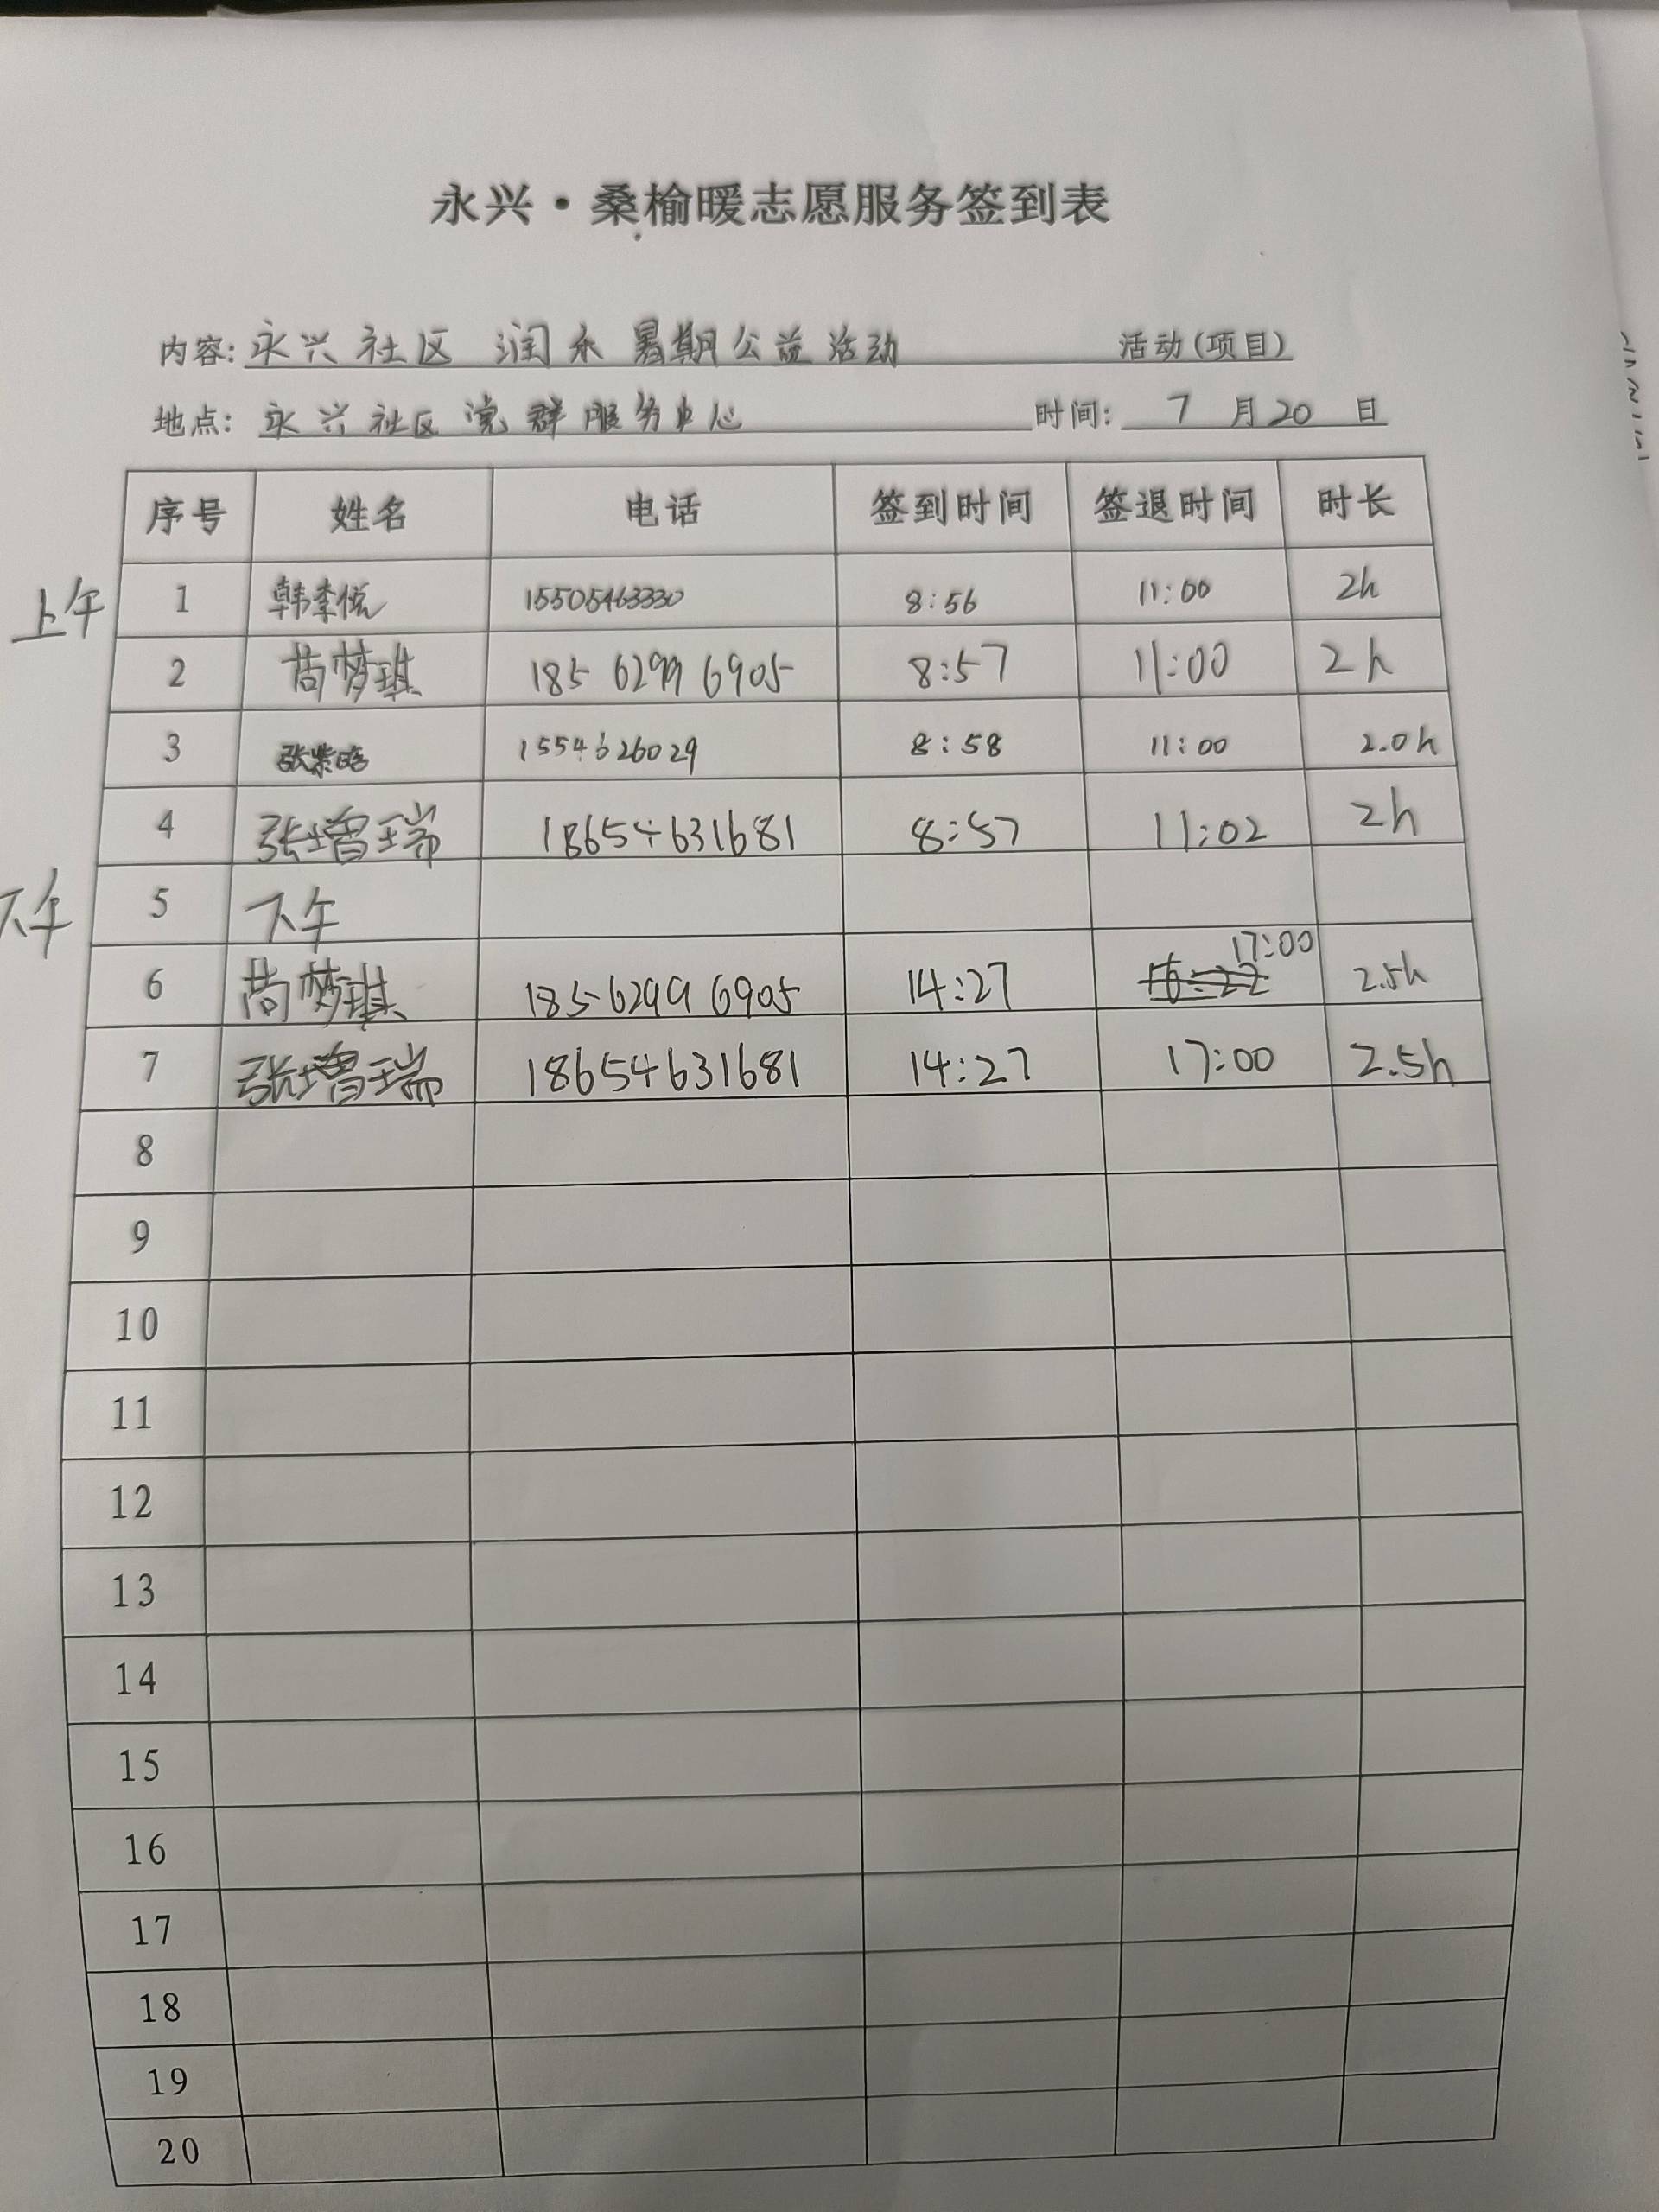 永兴·桑榆暖志愿服务签到表
内容: 永兴社区 润永暑期公益活动 活动(项目)
地点: 永兴社区党群服务中心 时间: 7月20日
序号 姓名 电话 签到时间 签退时间 时长
上午 1 韩李悦 15505463330 8:56 11:00 2h
2 苘梦琪 185 6299 6905 8:57 11:00 2h
3 张紫晗 1554626029 8:58 11:00 2.0h
4 张增瑞 18654631681 8:57 11:02 2h
下午 5 下午
6 苘梦琪 185 6299 6905 14:27 17:00 2.5h
7 张增瑞 18654631681 14:27 17:00 2.5h
8
9
10
11
12
13
14
15
16
17
18
19
20